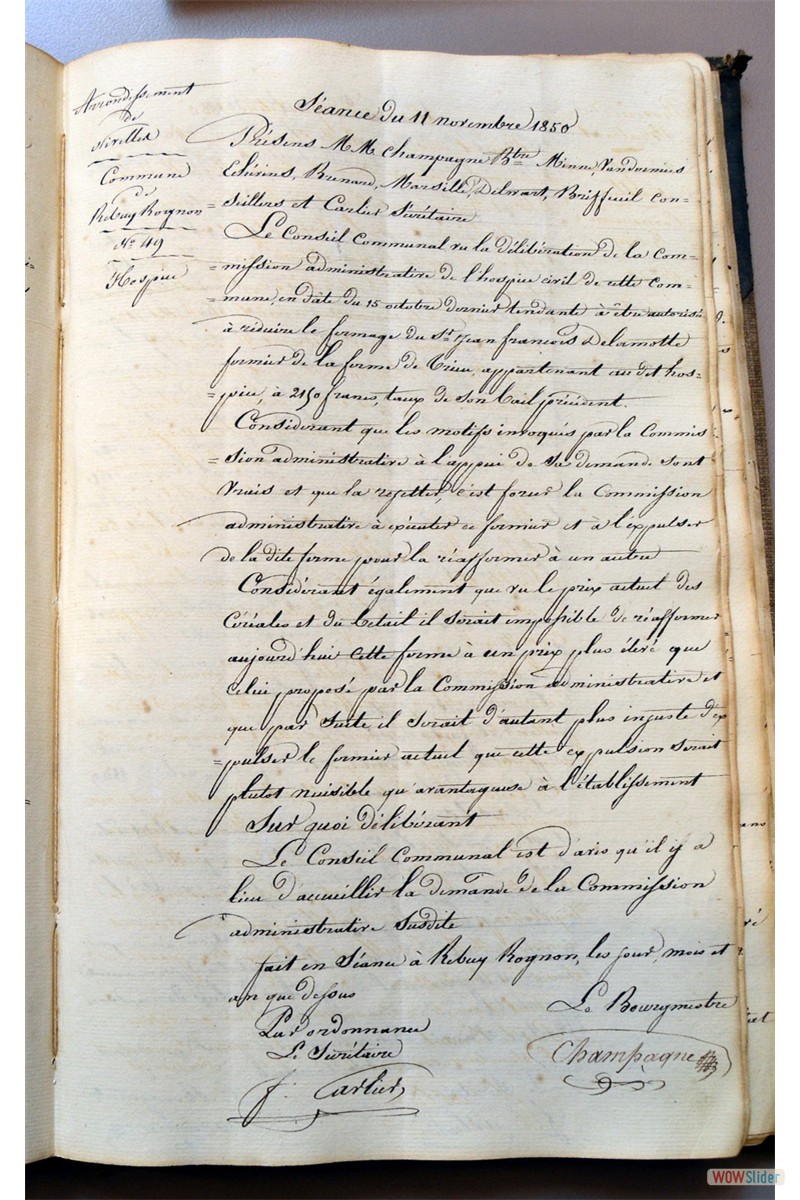 Arrondissement
de
Nivelles
Commune
de
Rebecq Rognon
No 49
Hospice
Séance du 11 novembre 1850
Présens M.M. Champagne Btre Minne,
Echévins, Brenard, Marsille, Delwart, Briffeuil con=
=seillers et Carlier Sécrétaire
Le Conseil Communal vu la délibération de la Com=
=mission administrative de l'hospice civil de cette Com=
=mune, en date du 15 octobre dernier tendante à être autorisée
à réduire le fermage du Sr. Jean francois Delamotte
fermier de la ferme de Trieu, appartenant au dit hos=
=pice, à 2150 francs, taux de son bail précédent.
Considérant que les motifs invoqués par la Commis=
=sion administrative à l'appui de sa demande sont
vrais et que la rejetter, c'est forcer la Commission
administrative à exécuter ce fermier et à l'expulser
de la dite ferme pour la réaffermer à un autre
Considérant également que vu le prix actuel des
Céréales et du betail il serait impossible de réaffermer
aujourd'hui cette ferme à un prix plus élevé que
celui proposé par la Commission administrative et
que par suite il serait d'autant plus injuste d'ex
=pulser le fermier actuel que cette expulsion serait
plutot nuisible qu'avantageuse à l'établissement
Sur quoi délibérant
Le Conseil Communal est d'avis qu'il y a
lieu d'accueillir la demande de la Commission
administrative susdite
fait en Séance à Rebecq Rognon, les jour, mois et
an que dessus
Le Bourgmestre
Par ordonnance
Le Secrétaire
Champagne
f. Carlier
WOWSlider